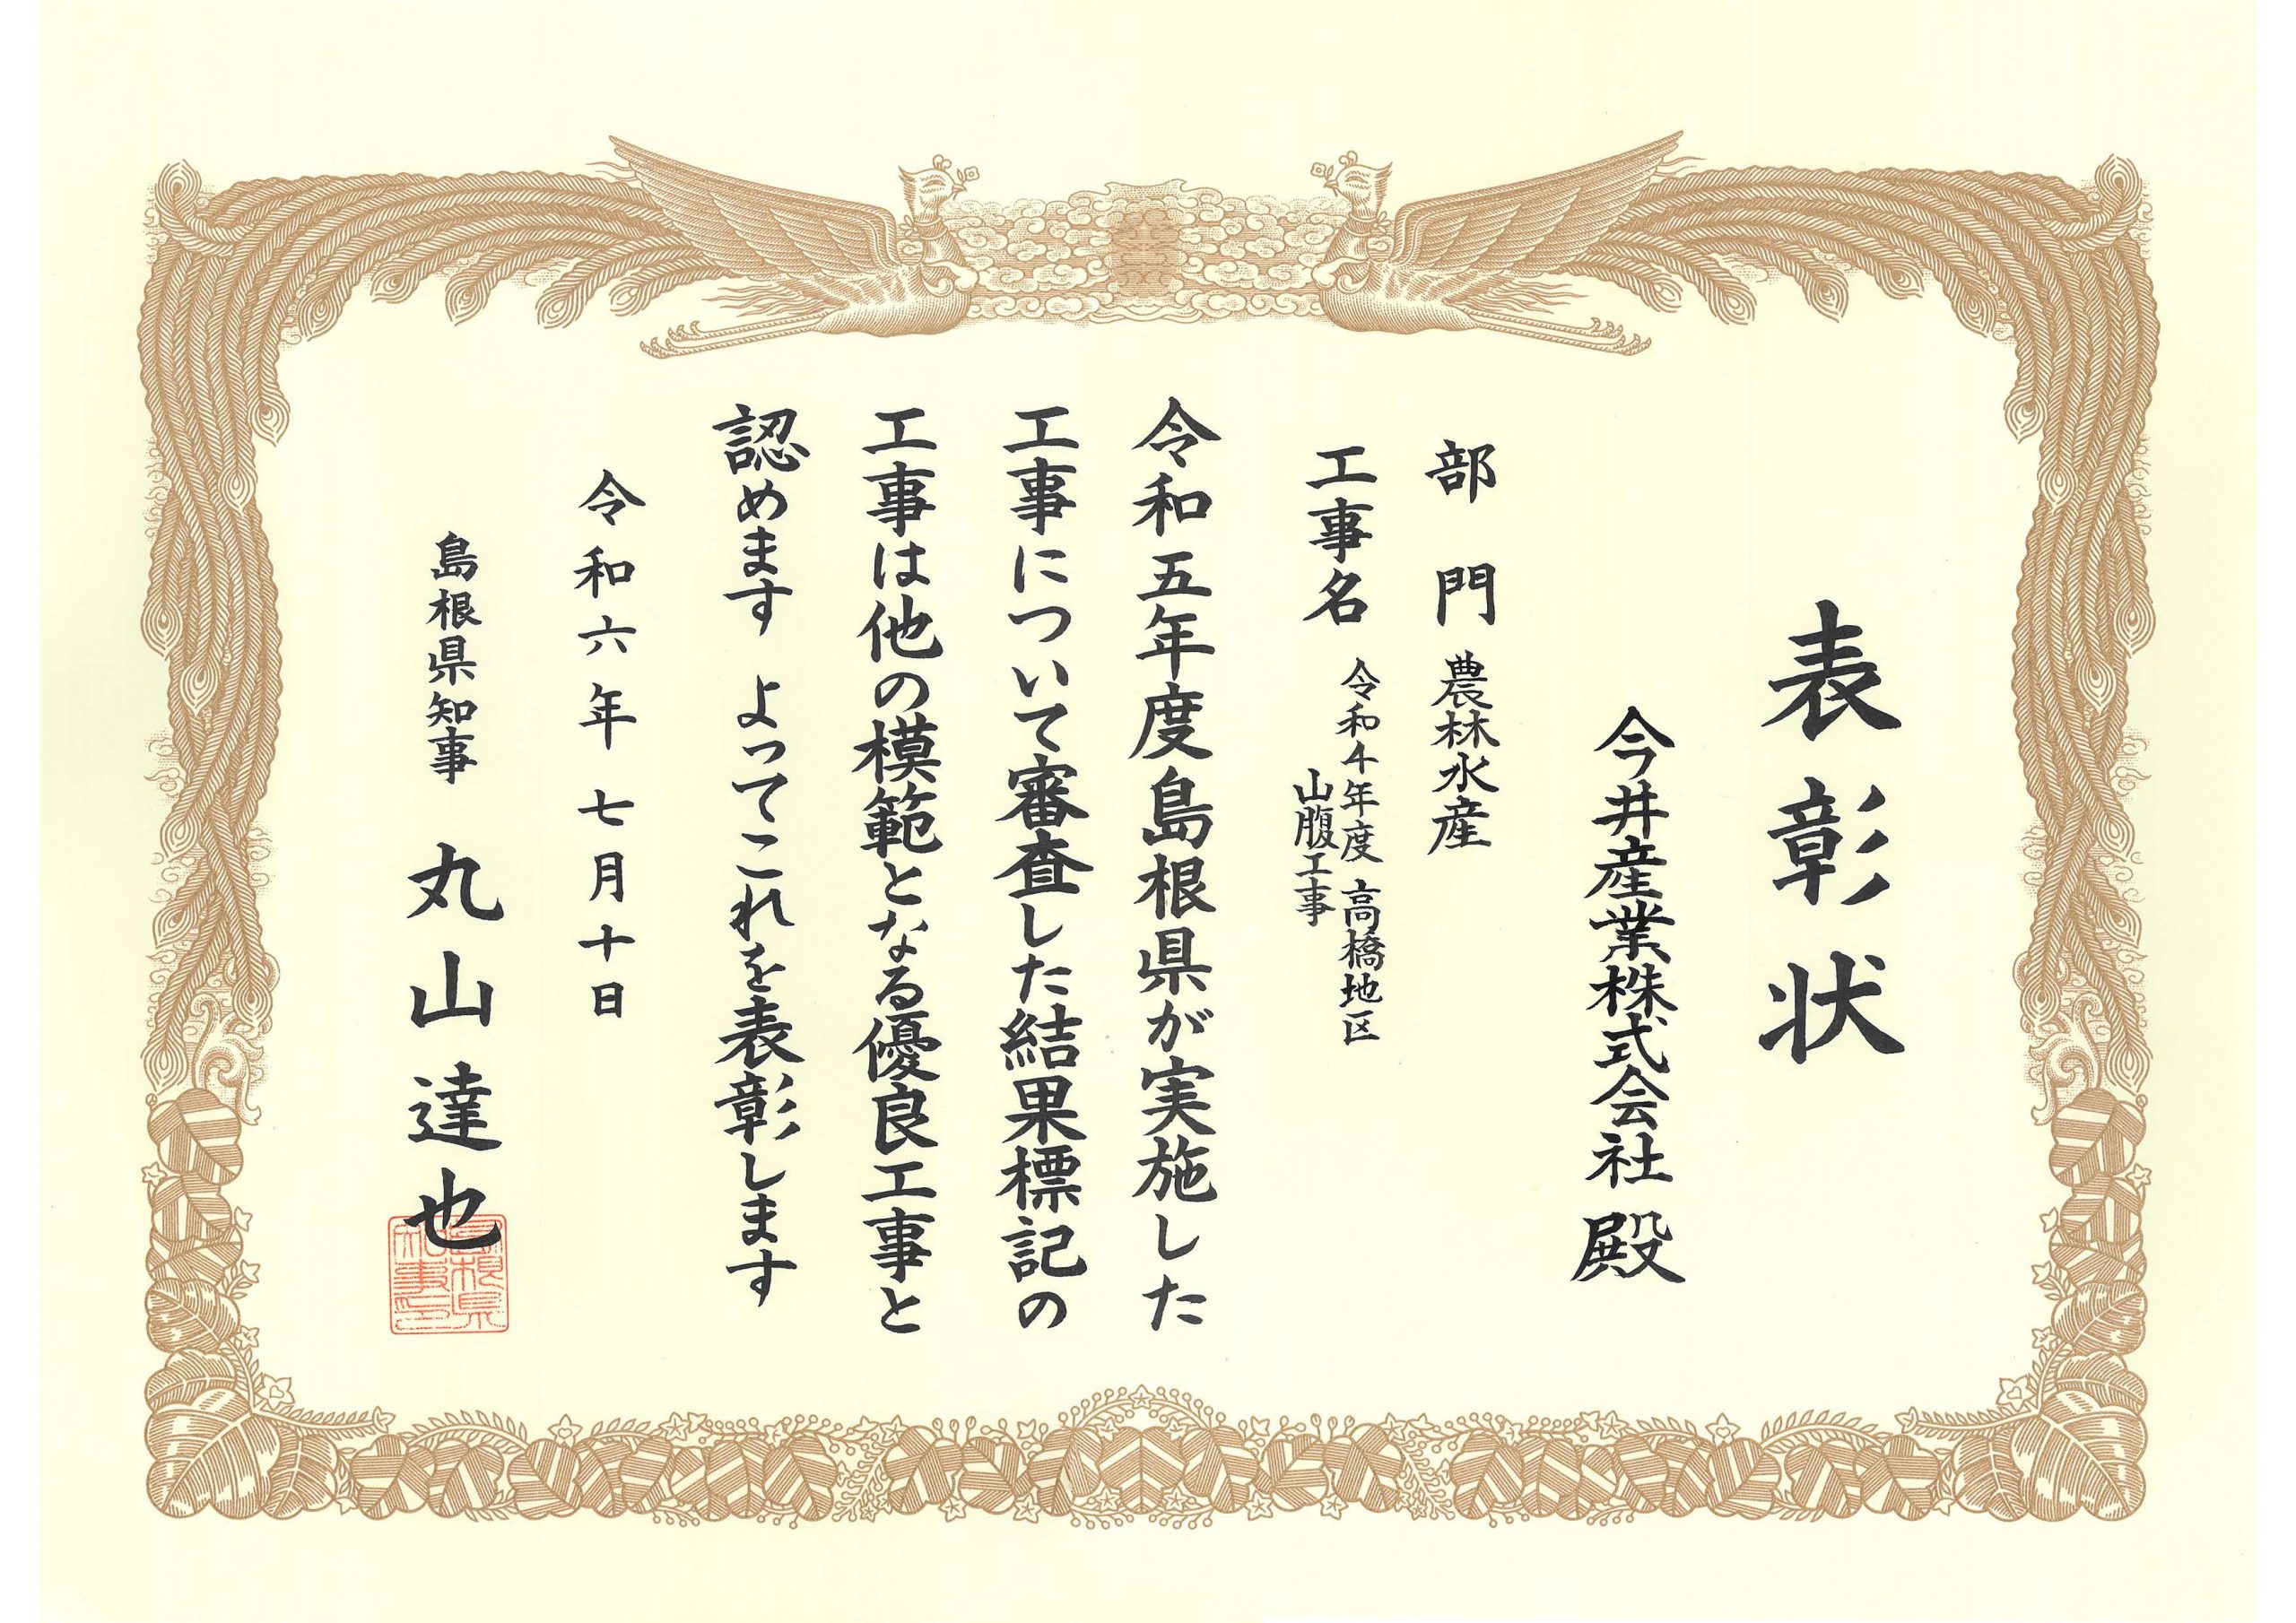 表彰状
今井産業株式会社 殿
部 門 農林水産
工事名 令和4年度 高橋地区
山腹工事
令和五年度島根県が実施した
工事について審査した結果標記の
工事は他の模範となる優良工事と
認めます よってこれを表彰します
令和六年 七月十日
島根県知事 丸山達也
島根県
知事印